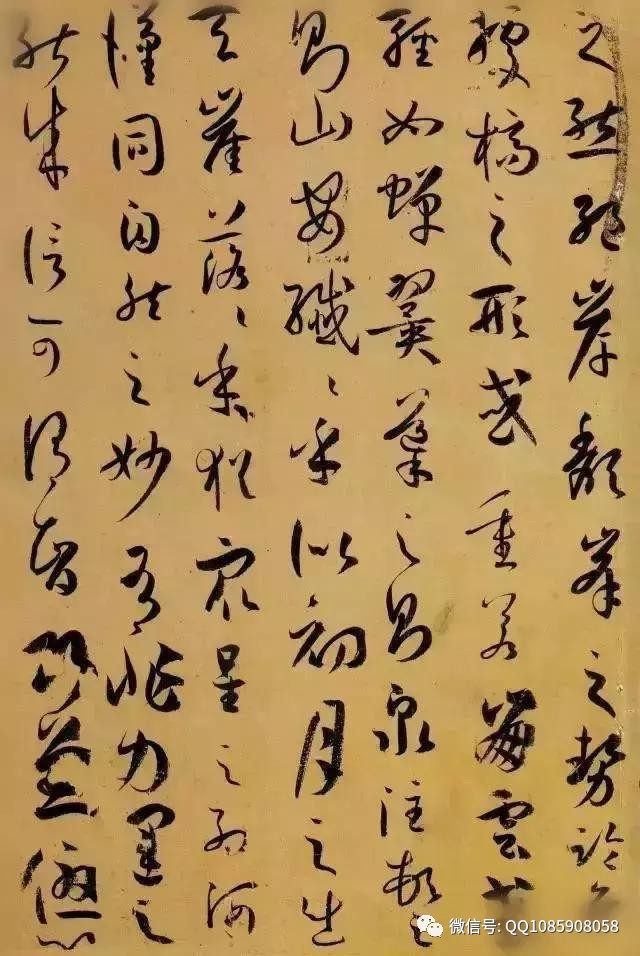 之態絕岸頹峯之勢臨危
據槁之形或重若崩雲或
輕如蟬翼導之則泉注頓之
則山安纖〻乎似初月之出
天崖落〻乎猶衆星之列河
漢同自然之妙有非力運之
能成信可謂智巧兼優心
微信号: QQ1085908058